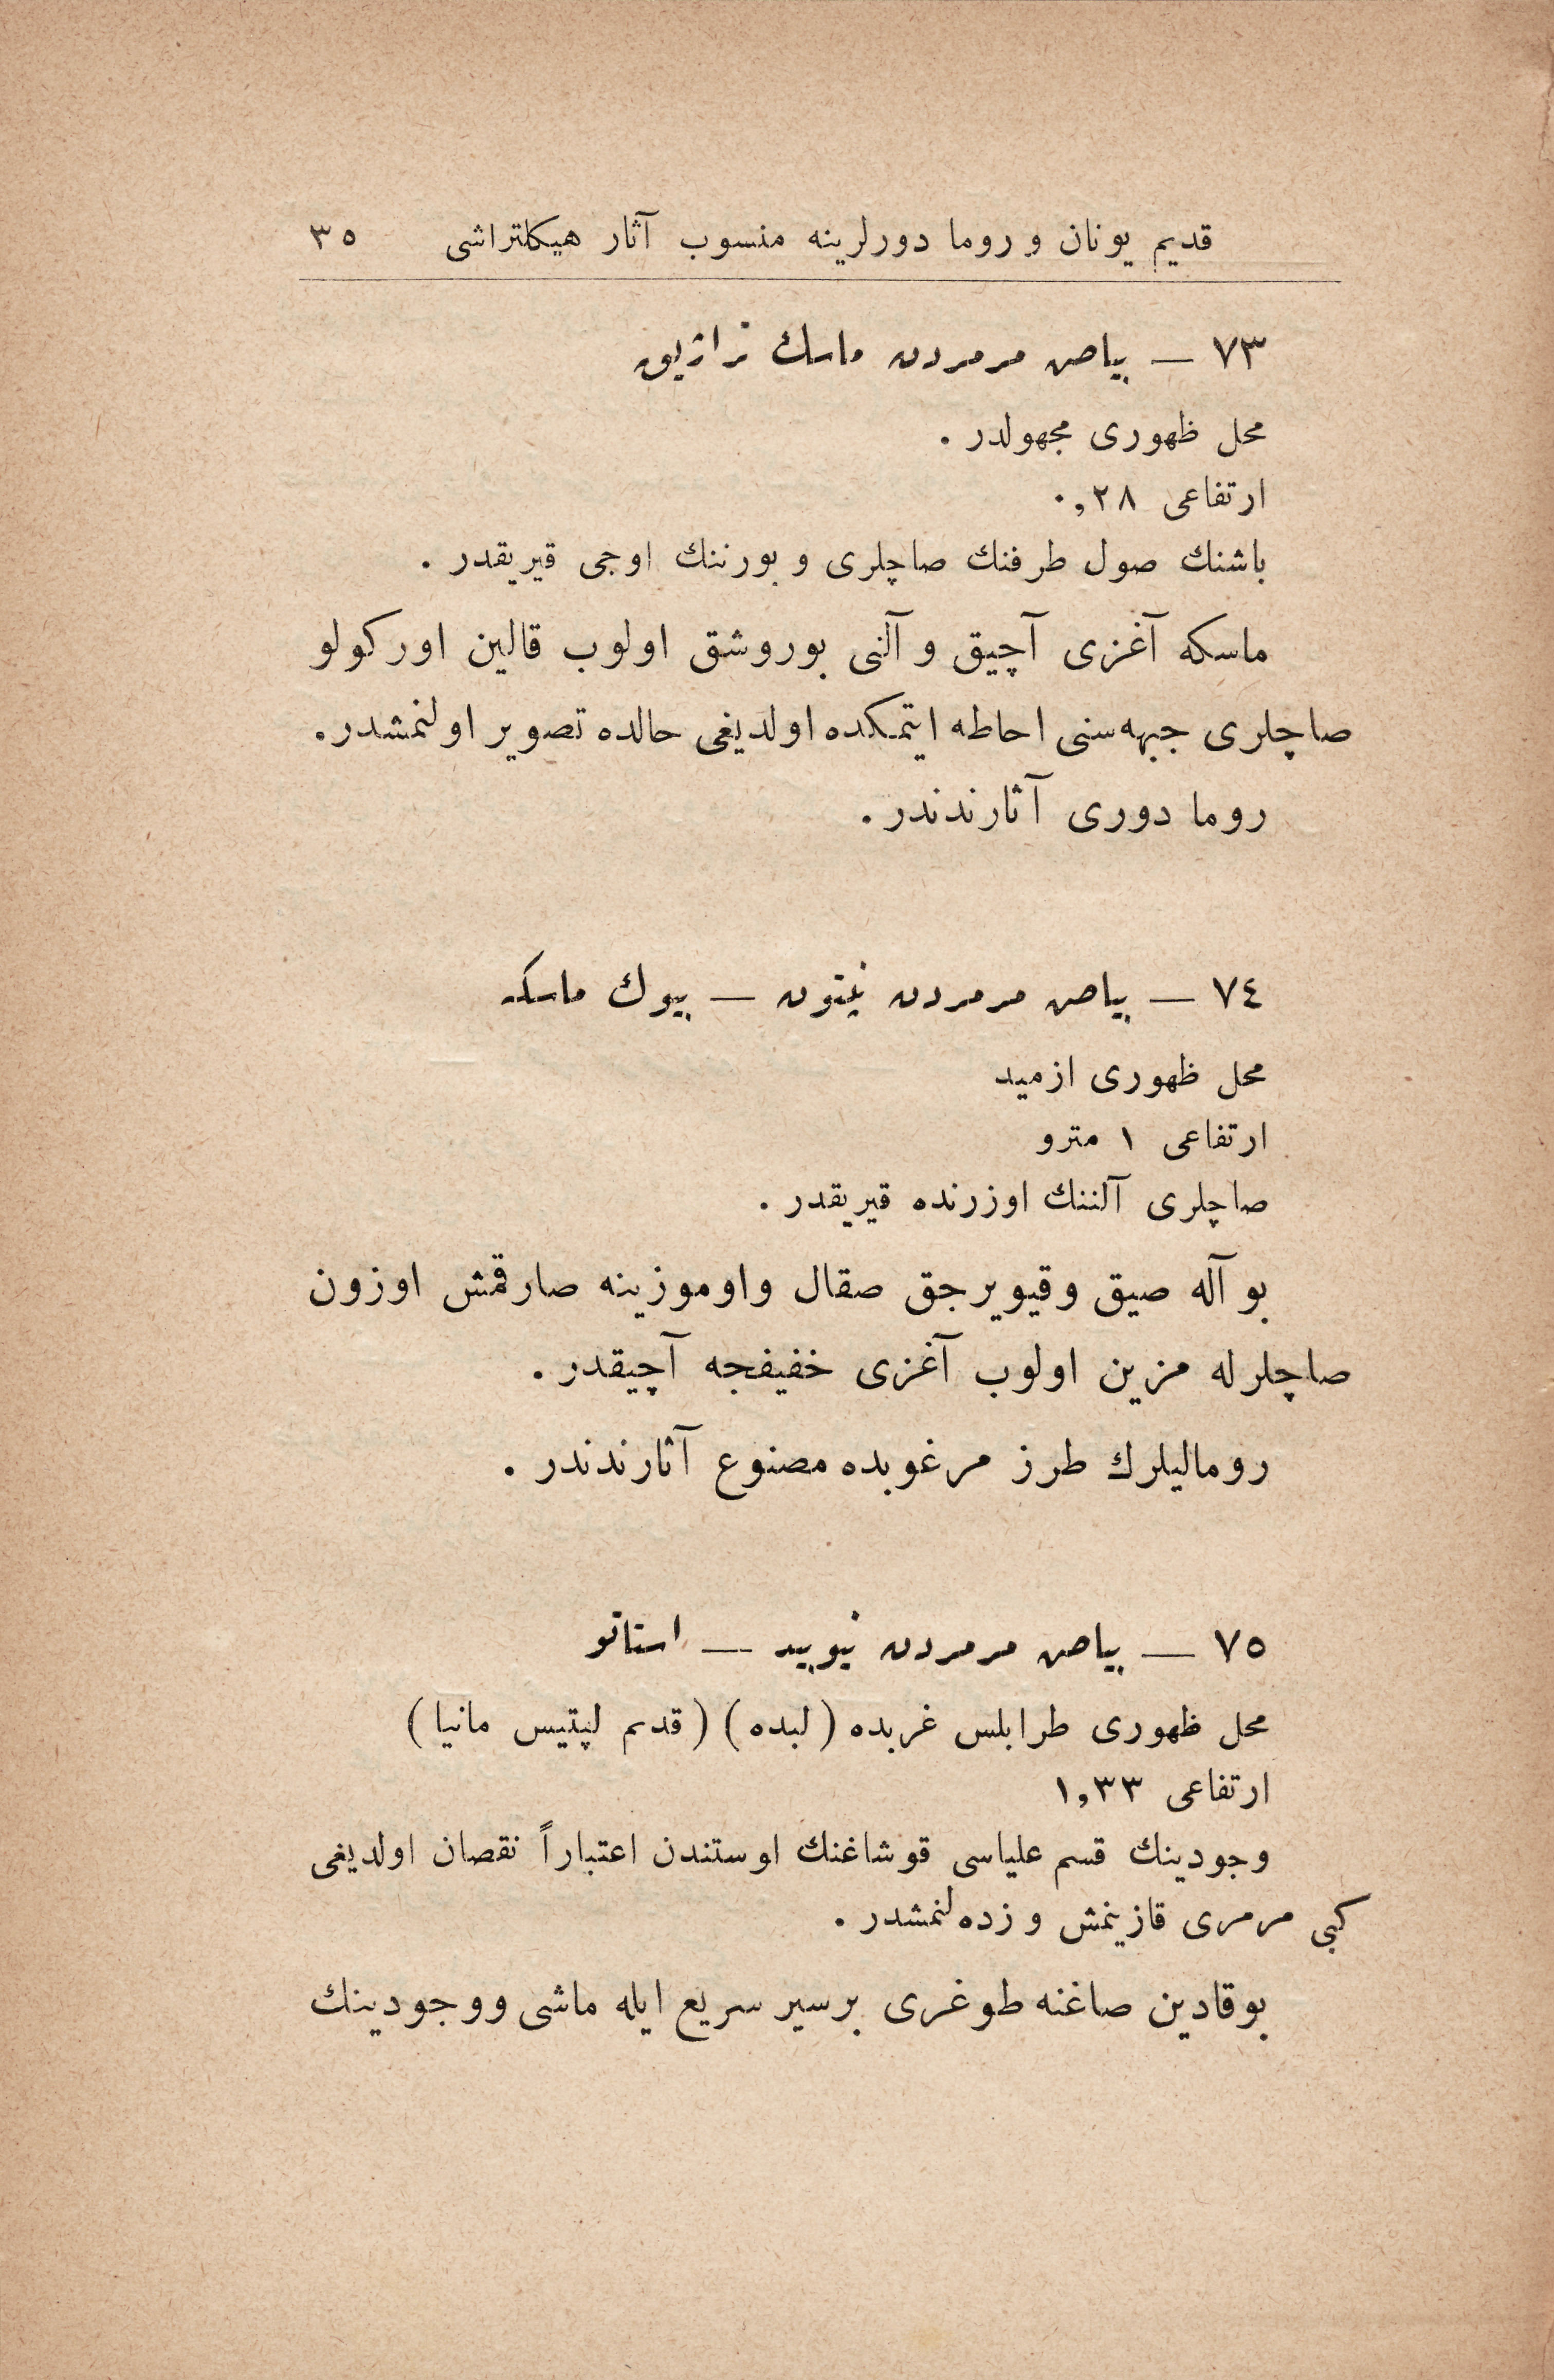 قديم يونان و روما دورلرينه منسوب آثار هيكلتراشى ٣٥
٧٣ — بياض مرمردن ماسك تراژيق
محل ظهورى مجهولدر .
ارتفاعى ٠,٢٨
باشنك صول طرفنك صاچلرى و بورننك اوجى قيريقدر .
ماسكه آغزى آچيق و آلنى بوروشق اولوب قالين اوركولو
صاچلرى جبهه‌سنى احاطه ايتمكده اولديغى حالده تصوير اولنمشدر.
روما دورى آثارندندر .
٧٤ — بياض مرمردن نپتون — بيوك ماسكه
محل ظهورى ازميد
ارتفاعى ١ مترو
صاچلرى آلننك اوزرنده قيريقدر .
بو آله صيق وقيويرجق صقال واوموزينه صارقمش اوزون
صاچلرله مزين اولوب آغزى خفيفجه آچيقدر .
روماليلرك طرز مرغوبده مصنوع آثارندندر .
٧٥ — بياض مرمردن نيوبيد — استاتو
محل ظهورى طرابلس غربده (لبده) (قديم لپتيس مانيا)
ارتفاعى ١,٣٣
وجودينك قسم علياسى قوشاغنك اوستندن اعتباراً نقصان اولديغى
كبى مرمرى قازينمش و زده‌لنمشدر .
بوقادين صاغنه طوغرى برسير سريع ايله ماشى ووجودينك